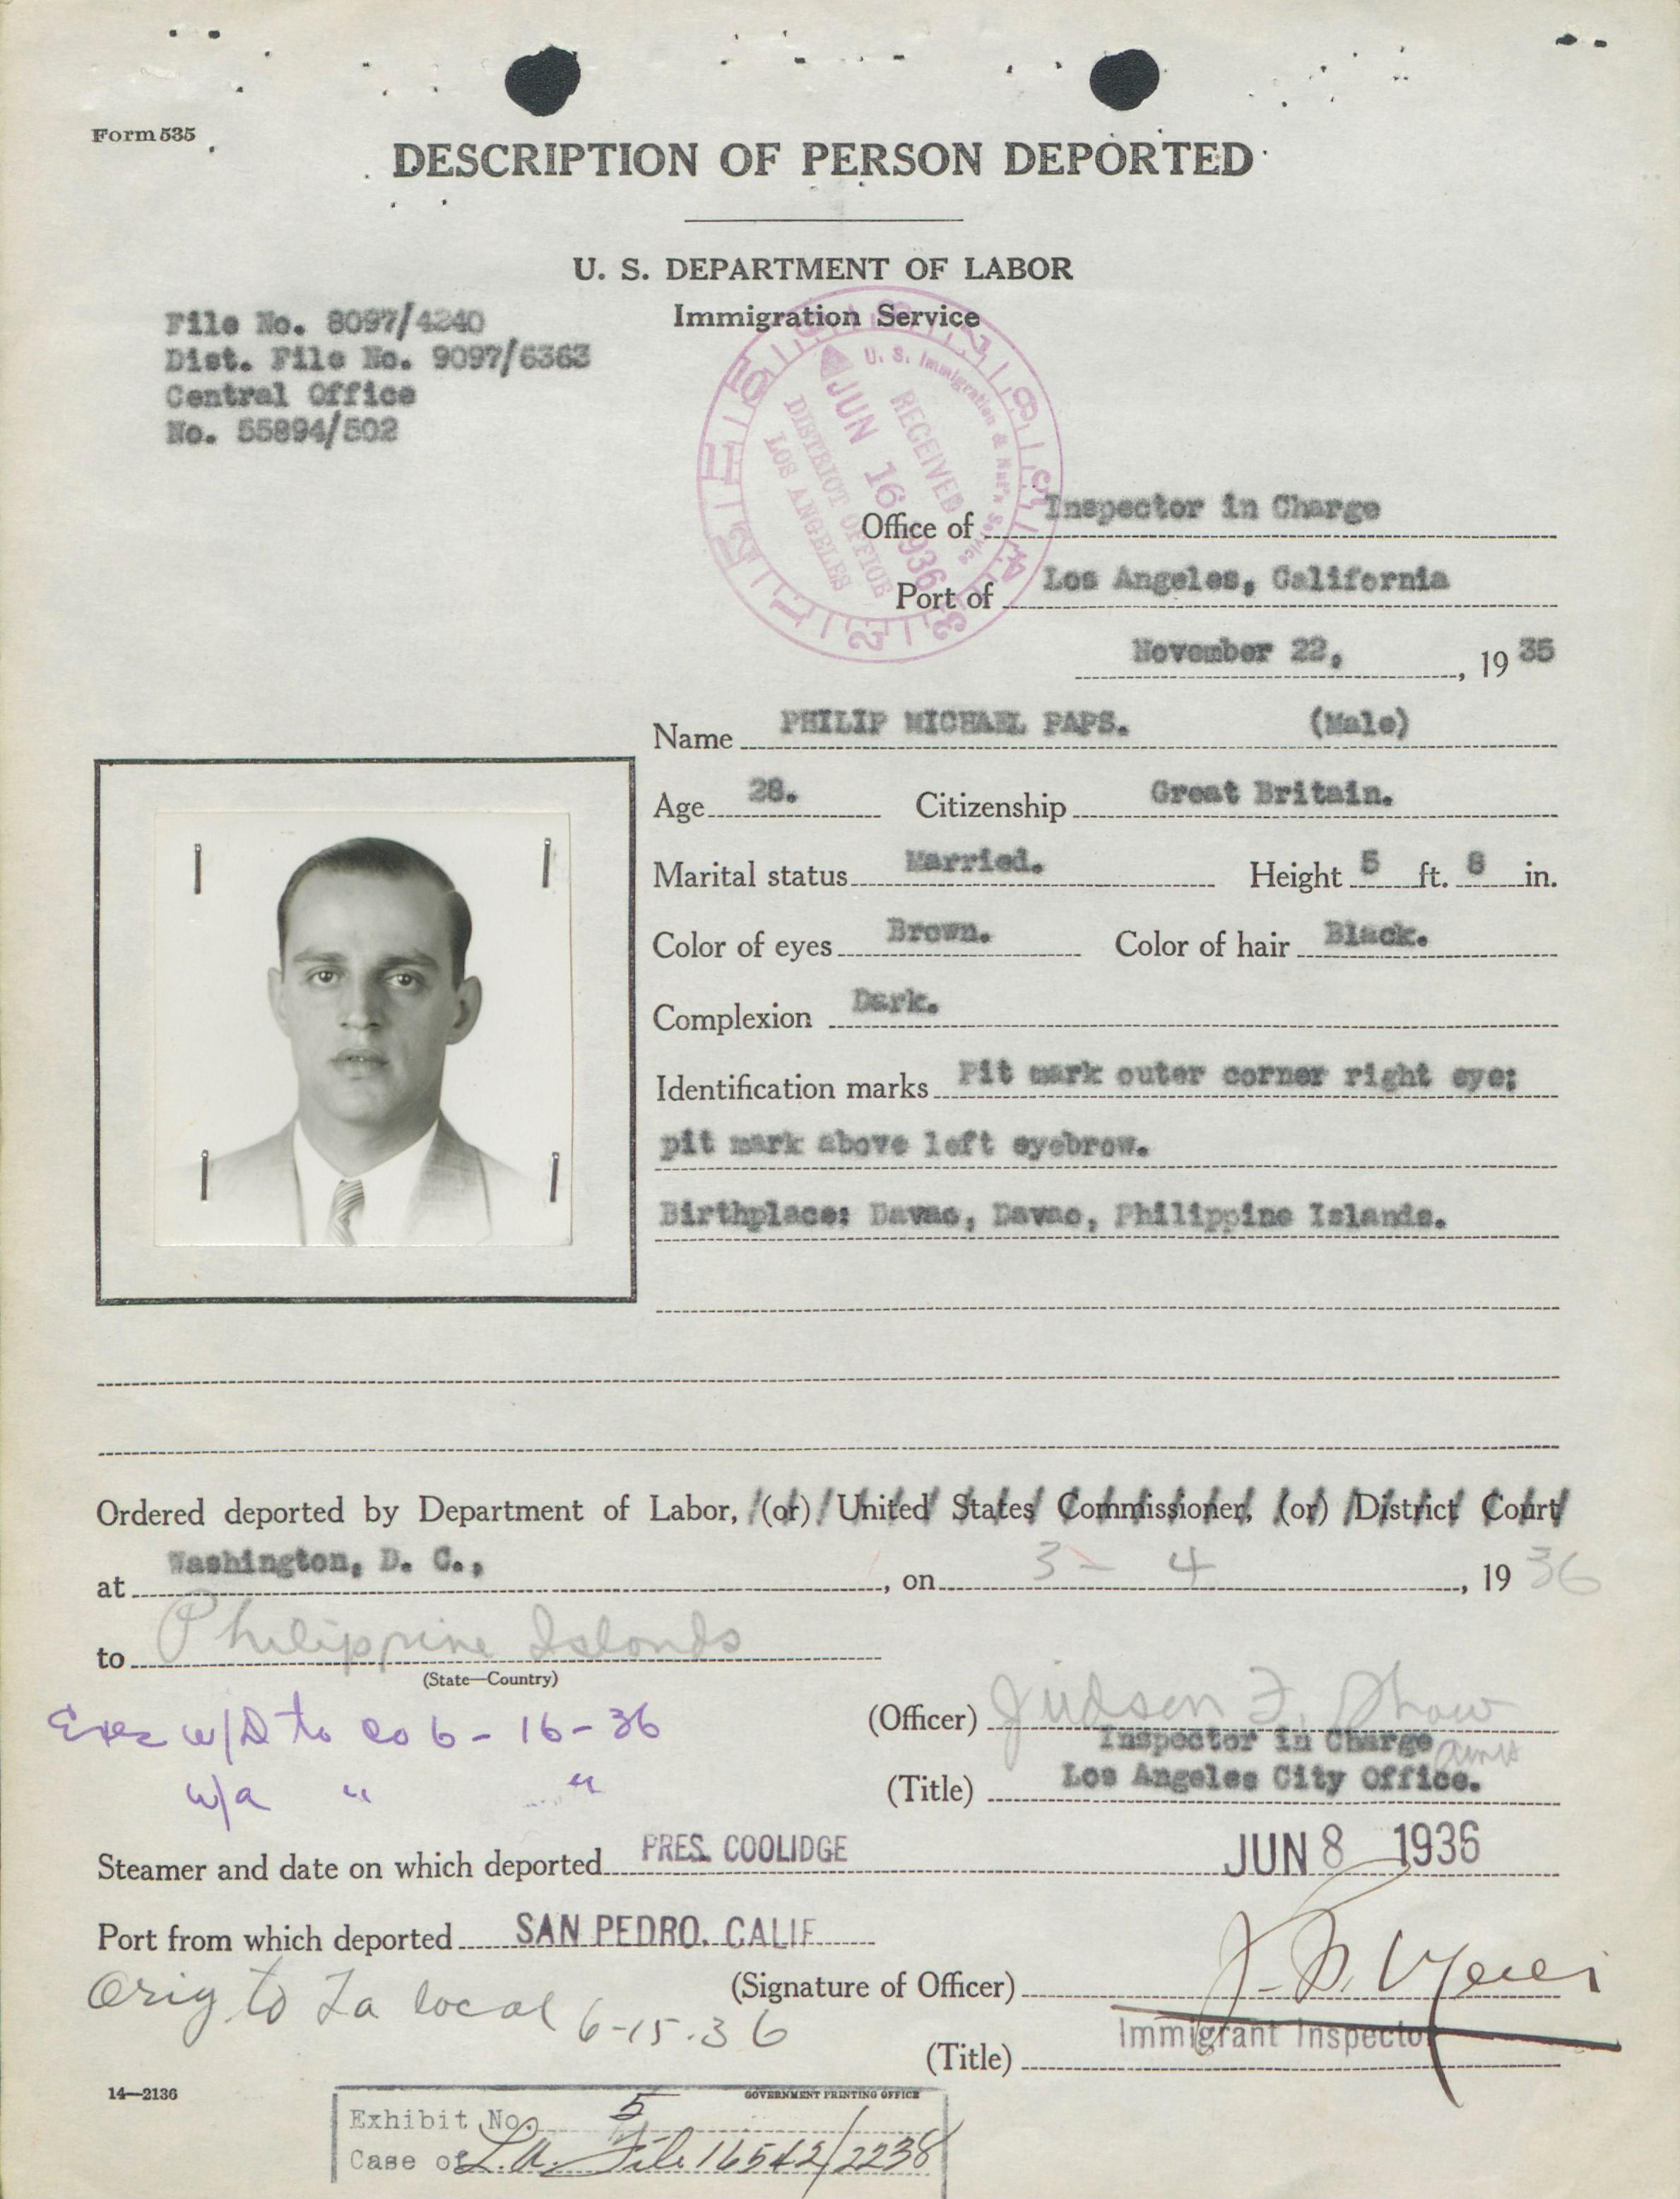 Form 535
DESCRIPTION OF PERSON DEPORTED
U. S. DEPARTMENT OF LABOR
Immigration Service
File No. 8097/4240
Dist. File No. 9097/6363
Central Office
No. 55894/502
U. S. Immigration & Nat'n Service
RECEIVED
JUN 16 1936
DISTRICT OFFICE
LOS ANGELES
Office of Inspector in Charge
Port of Los Angeles, California
November 22, , 19 35
Name PHILIP MICHAEL PAPS. (Male)
Age 28. Citizenship Great Britain.
Marital status Married. Height 5 ft. 8 in.
Color of eyes Brown. Color of hair Black.
Complexion Dark.
Identification marks Pit mark outer corner right eye;
pit mark above left eyebrow.
Birthplace: Davao, Davao, Philippine Islands.
Ordered deported by Department of Labor, (or) United States Commissioner, (or) District Court
at Washington, D. C., , on 3 - 4 , 19 36
to Philippine Islands
(State—Country)
w/D to co 6-16-36
w/a " "
(Officer) Judson F. Shaw
Inspector in Charge
(Title) Los Angeles City Office.
Steamer and date on which deported PRES. COOLIDGE JUN 8 1936
Port from which deported SAN PEDRO, CALIF
Orig to La local 6-15-36
(Signature of Officer)
(Title) Immigrant Inspector
14—2136
GOVERNMENT PRINTING OFFICE
Exhibit No. 5
Case of L.A. File 16542/2238